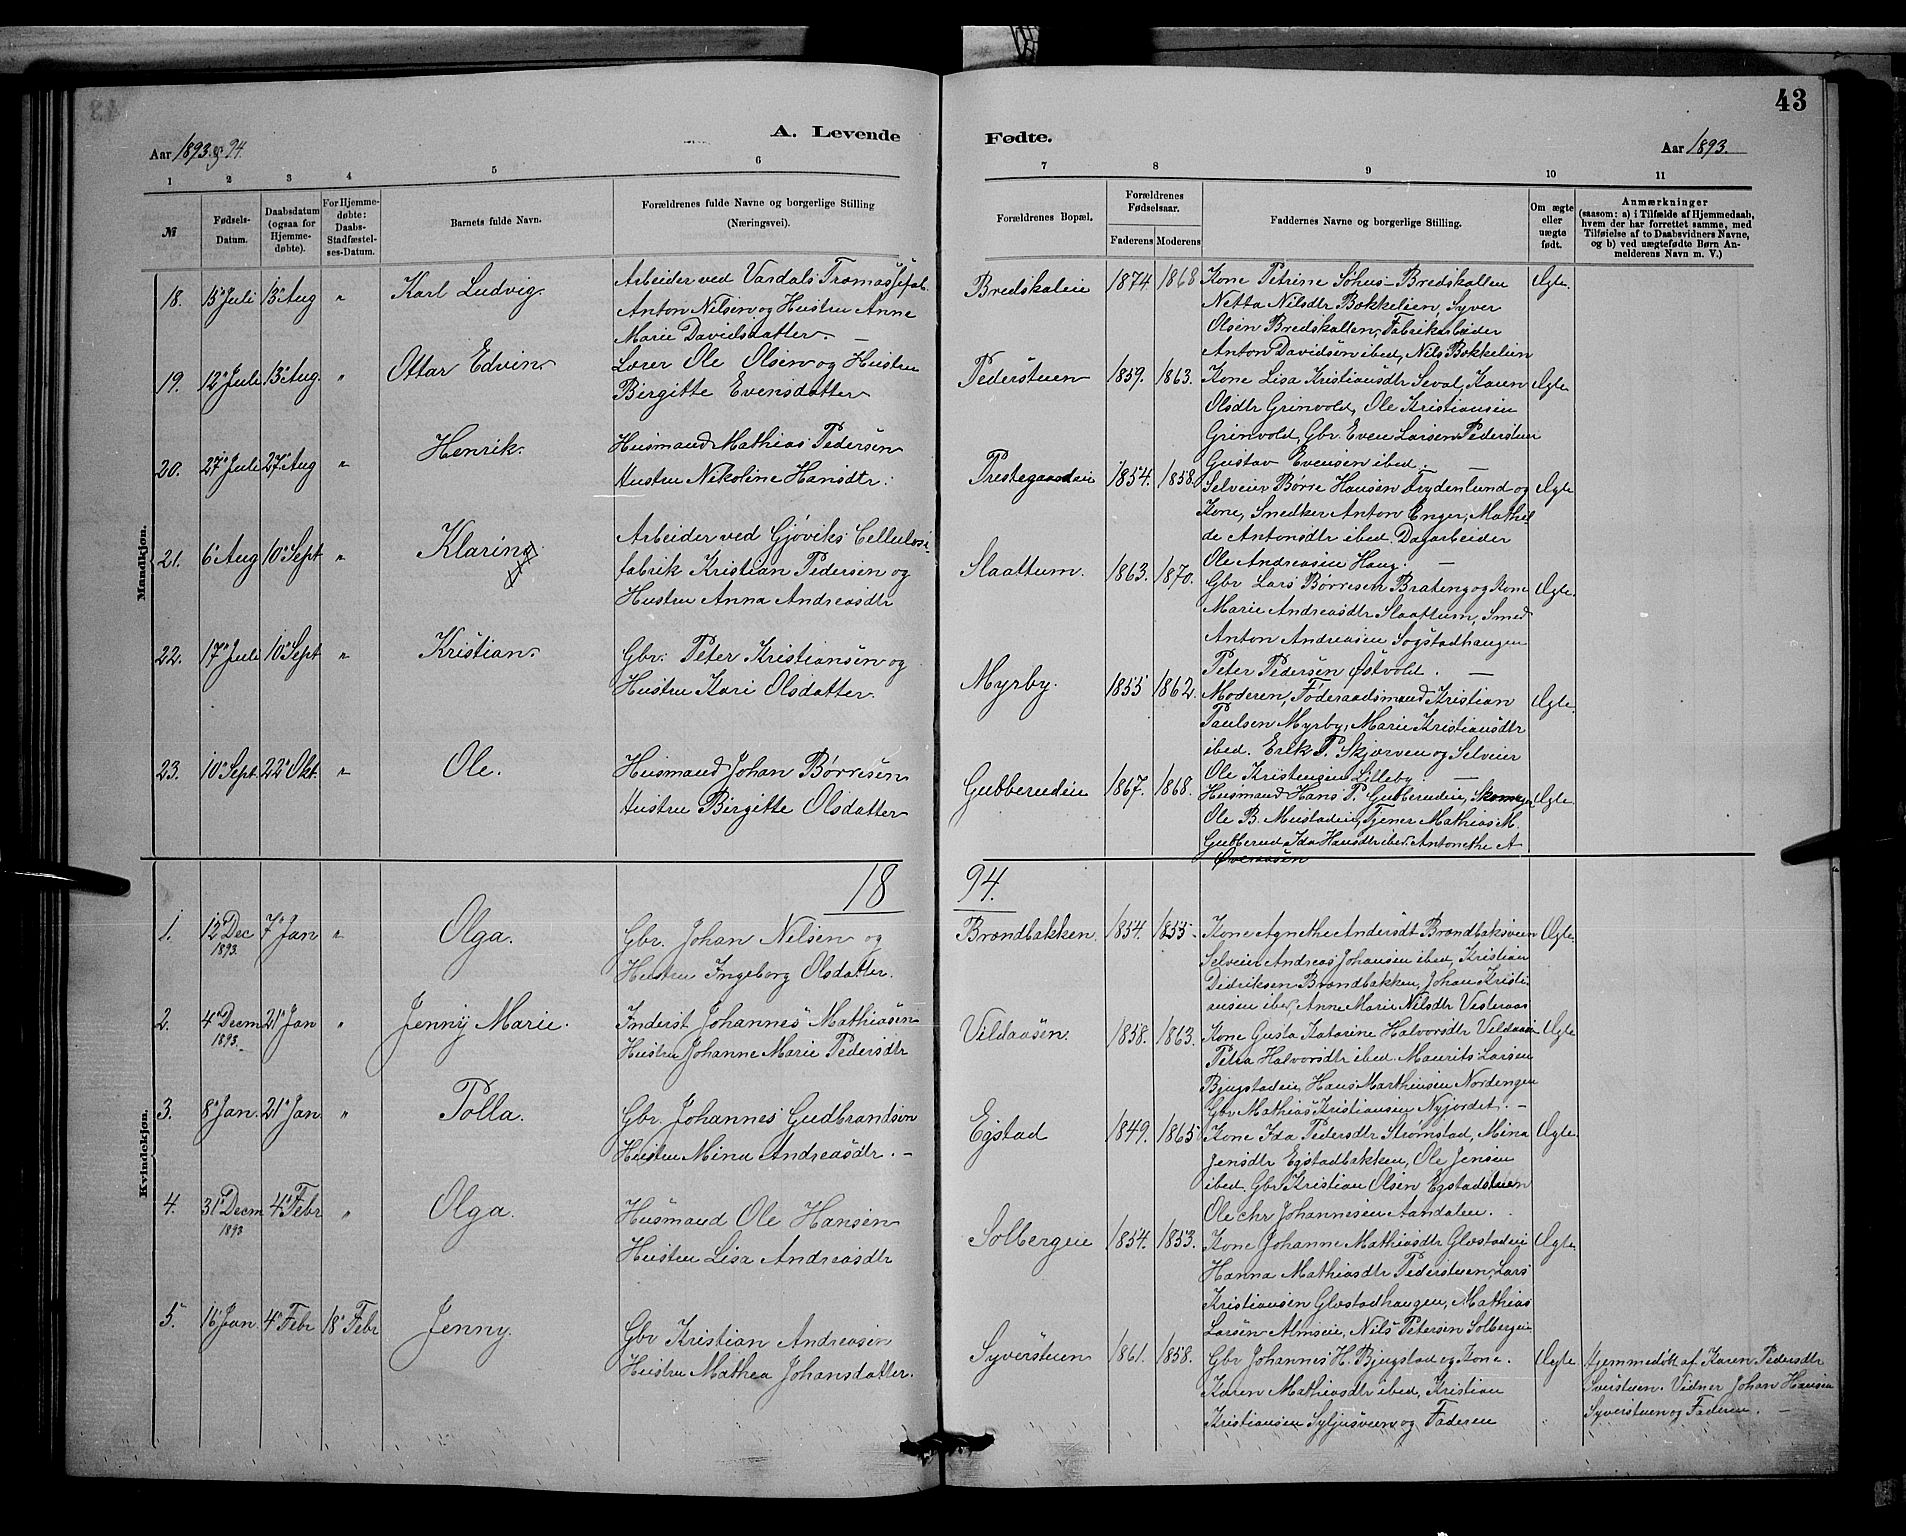 43
A. Levende
Fødte.
Aar 1893 og 94.
Aar 1893.
1 2 3 4 5 6 7 8 9 10 11
№
Fødsels-Datum.
Daabsdatum (ogsaa for Hjemmedøbte).
For Hjemmedøbte: Daabs-Stadfæstelses-Datum.
Barnets fulde Navn.
Forældrenes fulde Navne og borgerlige Stilling (Næringsvei).
Forældrenes Bopæl.
Forældrenes Fødselsaar.
Faderens Moderens
Faddernes Navne og borgerlige Stilling.
Om ægte eller uægte født.
Anmærkninger
(saasom: a) i Tilfælde af Hjemmedaab, hvem der har forrettet samme, med Tilføielse af to Daabsvidners Navne, og b) ved uægtefødte Børn Anmelderens Navn m. V.)
Mandkjøn.
18. 15 Juli 13 Aug " Karl Ludvig.
Arbeider ved Vardals Træmassefab.
Anton Nilsen og Hustru Anne
Marie Davidsdatter. —
Bredskaleie 1874 1868
Kone Petrine Søhus Bredskallen
Netta Nilsdtr Bokkelien, Syver
Olsen Bredskallen, Fabrikarbeider
Anton Davidsen ibed, Nils Bokkelien
Ægte.
19. 12 Juli 13 Aug. " Ottar Edvin.
Lærer Ole Olsen og Hustru
Birgitte Evensdatter
Pederstuen 1859. 1863.
Kone Lisa Kristiansdtr Seval, Karen
Olsdtr Grinvold, Ole Kristiansen
Grinvold, Gbr. Even Larsen Pederstuen
Gustav Evensen ibed. —
Ægte
20. 27 Juli 27 Aug " Henrik.
Husmand Mathias Pedersen
Hustru Nikoline Hansdtr.
Prestegaardeie 1854. 1858.
Selveier Børre Hansen Frydenlund og
Kone, Snedker Anton Enger, Mathil
de Antonsdtr ibed. Dagarbeider
Ole Andreasen Haug. —
Ægte
21. 6 Aug 10 Sept " Klaring
Arbeider ved Gjøviks Cellulose-
fabrik Kristian Pedersen og
Hustru Anna Andreasdtr
Slaattum. 1863. 1870.
Gbr Lars Børresen Brateng og Kone
Marie Andreasdtr Slaattum, Smed
Anton Andreasen Sogstadhaugen
Peter Pedersen Østvold. —
Ægte.
22. 17 Juli 10 Sept " Kristian.
Gbr. Peter Kristiansen og
Hustru Kari Olsdatter.
Myrby. 1855 1862.
Moderen, Føderaadsmand Kristian
Paulsen Myrby, Marie Kristiansdtr
ibed. Erik P. Skjærven og Selveier
Ole Kristensen Lilleby. —
Ægte.
23. 10 Sept. 22 Okt. " Ole.
Husmand Johan Børresen
Hustru Birgitte Olsdatter
Gubberudeie 1867. 1868.
Husmand Hans P. Gubberudeie, Skomager
Ole B. Mustadeie, Tjener Mathias M.
Gubberud Ida Hansdtr ibed. Antonethe A
Øveraasen
Ægte.
18 94.
Kvindekjøn.
1. 12 Dec 1893. 7 Jan " Olga.
Gbr. Johan Nilsen og
Hustru Ingeborg Olsdatter.
Brændbakken. 1854. 1855.
Kone Agnethe Andersdt Brændbaksveen
Selveier Andreas Johansen ibed, Kristian
Didriksen Brændbakken, Johan Kristi-
ansen ibed, Anne Marie Nilsdtr Vesteraas
Ægte.
2. 4 Decm 1893. 21 Jan " Jenny Marie.
Inderst Johannes Mathiasen
Hustru Johanne Marie Pedersdtr
Vildaasen. 1858. 1863.
Kone Gusta Katarine Halvorsdtr Vildaasen
Petra Halvorsdtr ibed. Maurits Larsen
Bjugstadeie, Hans Marthinsen Nordengen
Gbr Mathias Kristiansen Nyjordet. —
Ægte
3. 8 Jan. 21 Jan " Polla.
Gbr. Johannes Gudbrandsen
Hustru Mina Andreasdtr. —
Egstad 1849. 1865
Kone Ida Pedersdtr Strømstad, Mina
Jensdtr Egstadbakken, Ole Jensen
ibed. Gbr Kristian Olsen Egstadstuen
Ole Chr Johannesen Aandalen.
Ægte.
4. 31 Decm 1893 4 Febr " Olga.
Husmand Ole Hansen
Hustru Lisa Andreasdtr
Solbergeie 1854. 1853.
Kone Johanne Mathiasdtr Gløstadeie
Hanna Mathiasdtr Pederstuen, Lars
Kristiansen Gløstadhaugen, Mathias
Larsen Almseie, Nils Petersen Solbergeie
Ægte
5. 16 Jan 4 Febr 18 Febr Jenny.
Gbr Kristian Andreasen
Hustru Mathea Johansdatter.
Syverstuen 1861. 1858.
Gbr Johannes H. Bjugstad og Kone.
Karen Mathiasdtr ibed, Kristian
Kristiansen Syljusveen og Faderen
Ægte
Hjemmedøbt af Karen Pedersdtr
Sverstuen. Vidner Johan Hansen
Syverstuen og Faderen. —